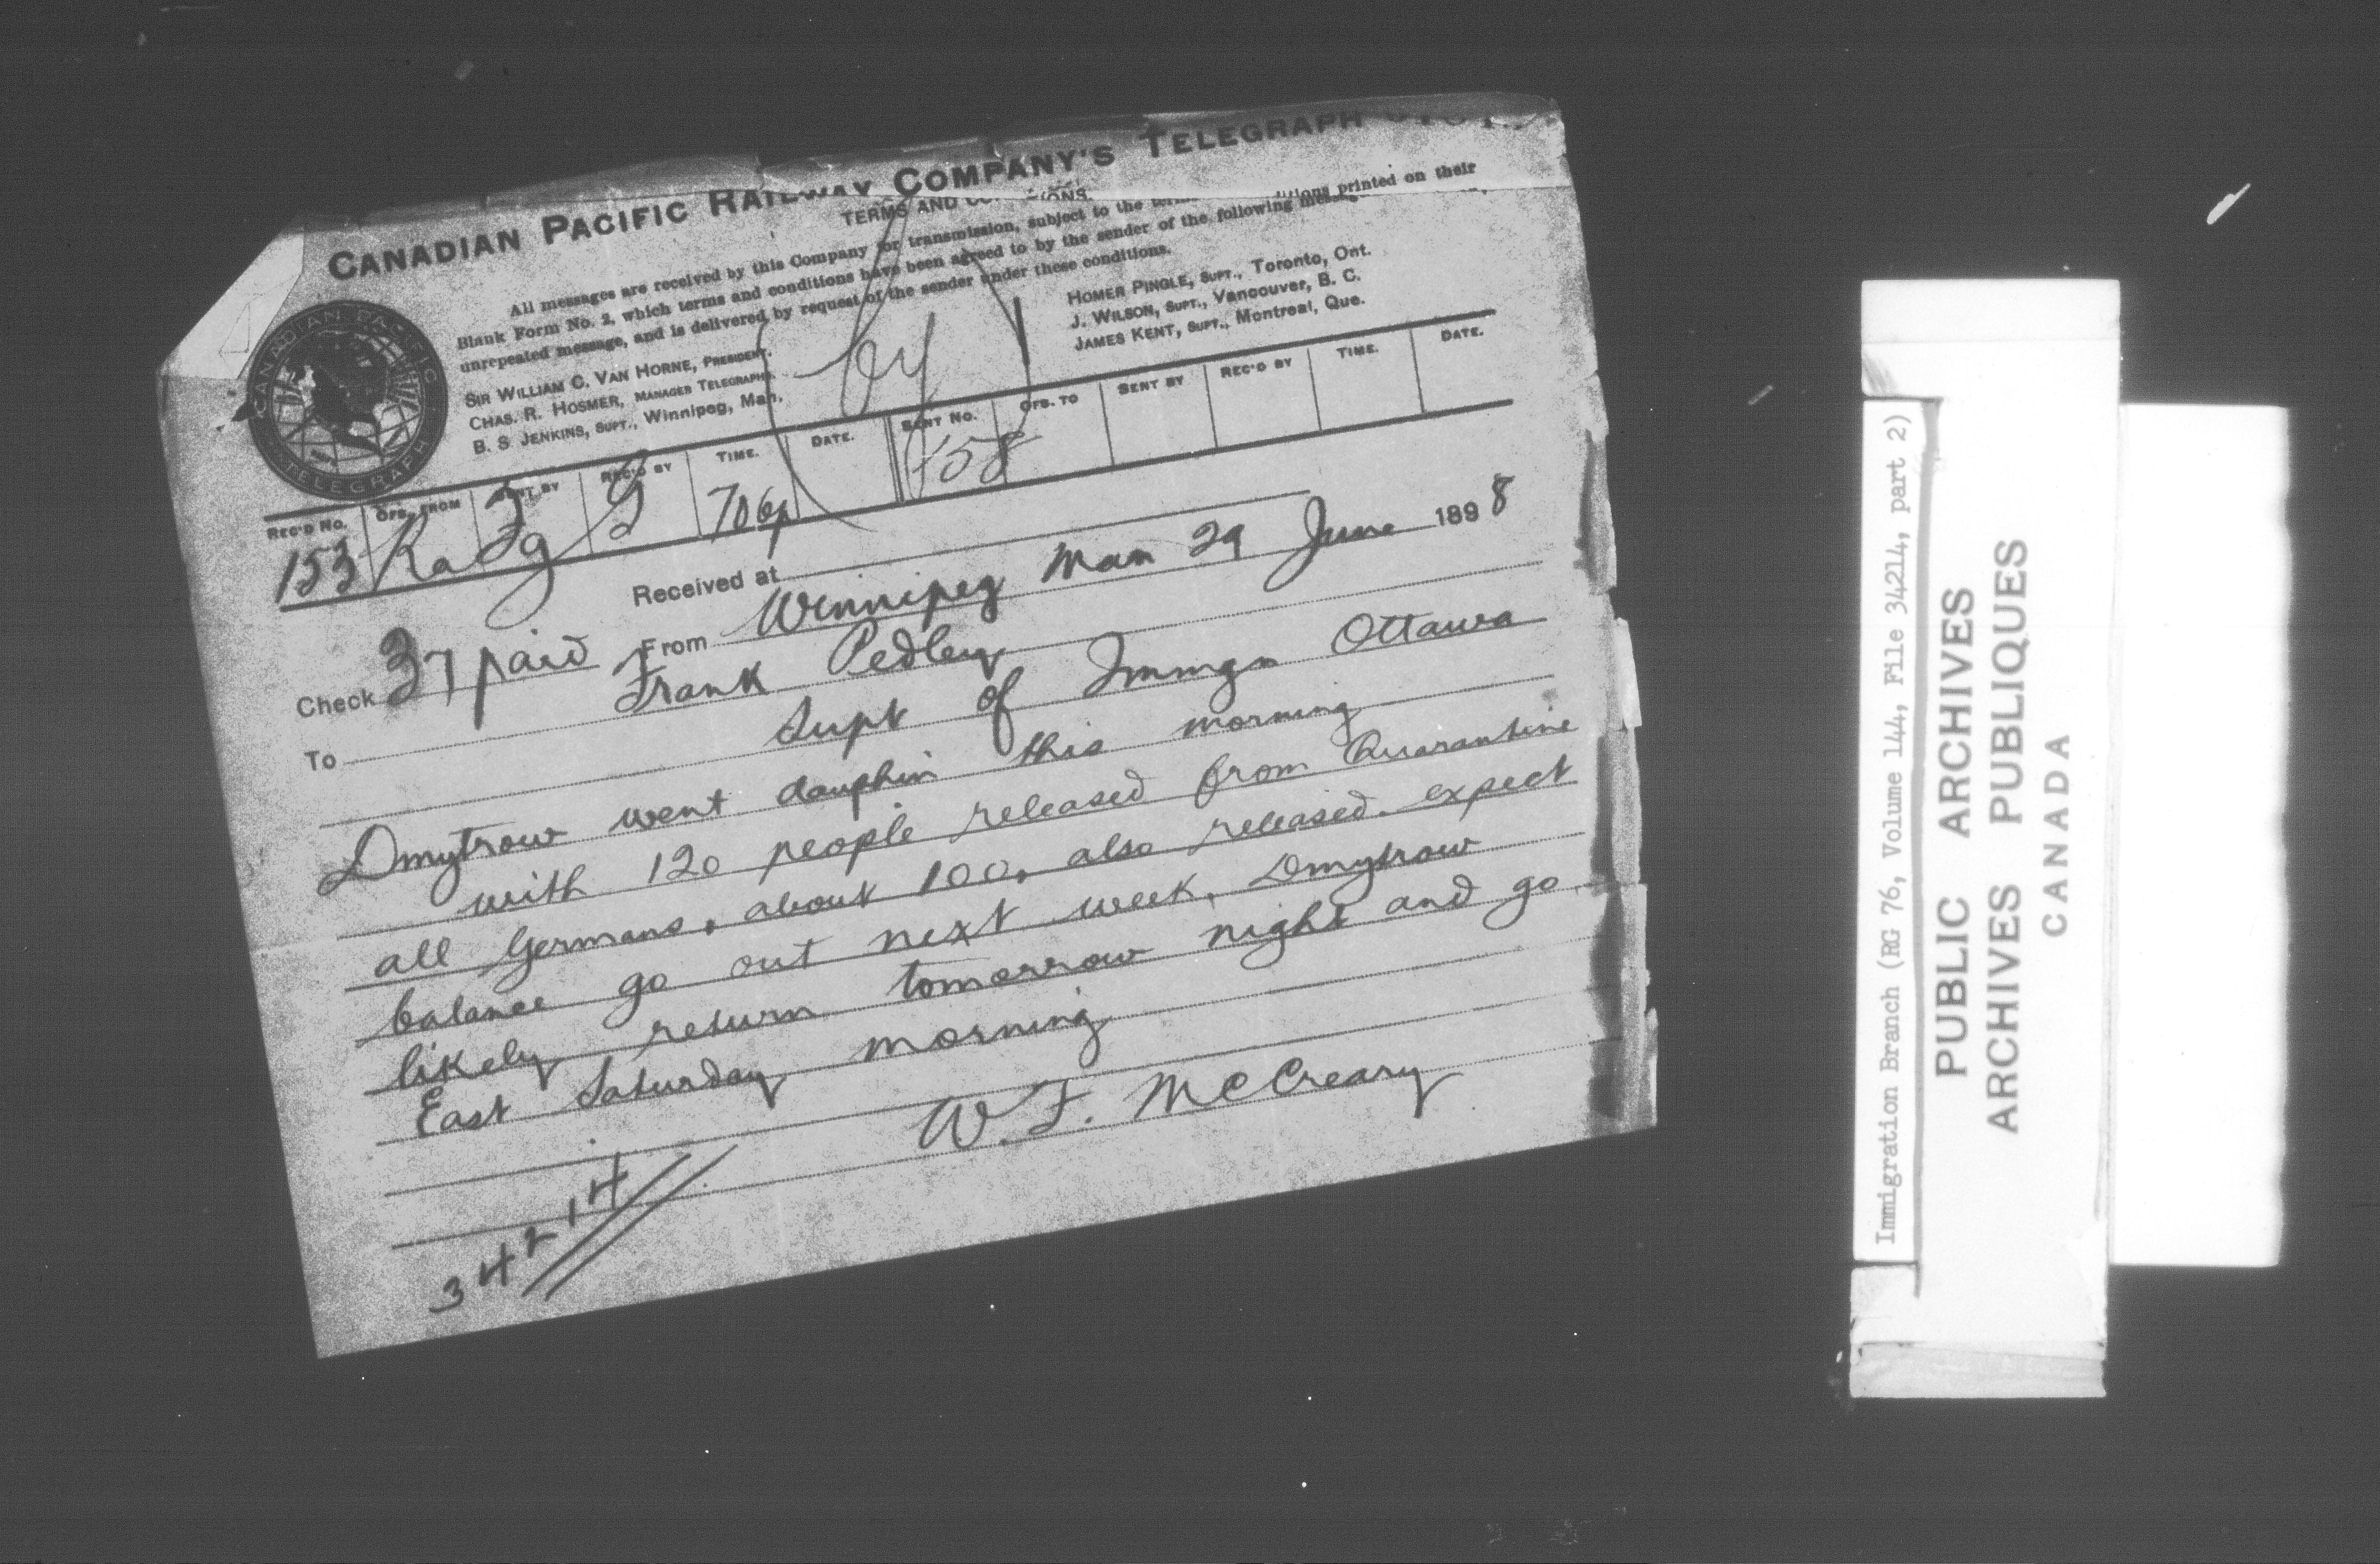 CANADIAN PACIFIC RAILWAY COMPANY'S TELEGRAPH
TERMS AND CONDITIONS.
All messages are received by this Company for transmission, subject to the terms and conditions printed on their
Blank Form No. 2, which terms and conditions have been agreed to by the sender of the following message.
unrepeated message, and is delivered by request of the sender under these conditions.
SIR WILLIAM C. VAN HORNE, PRESIDENT.
CHAS. R. HOSMER, MANAGER TELEGRAPHS.
B. S. JENKINS, SUPT., Winnipeg, Man.
HOMER PINGLE, SUPT., Toronto, Ont.
J. WILSON, SUPT., Vancouver, B. C.
JAMES KENT, SUPT., Montreal, Que.
CANADIAN PACIFIC
TELEGRAPH
REC'D No. OFS. FROM SENT BY REC'D BY TIME. DATE. SENT No. OFS. TO SENT BY REC'D BY TIME. DATE.
153 Ra 706p
Received at
From Winnipeg Man 29 June 1898
Check 37 paid
To Frank Pedley
Supt of Immgn Ottawa
Dmytrow went dauphin this morning
with 120 people released from Quarantine
all Germans, about 100, also released. expect
balance go out next week, Dmytrow
likely return tomorrow night and go
East Saturday morning
W. F. McCreary
34214
Immigration Branch (RG 76, Volume 144, File 34214, part 2)
PUBLIC ARCHIVES
ARCHIVES PUBLIQUES
CANADA